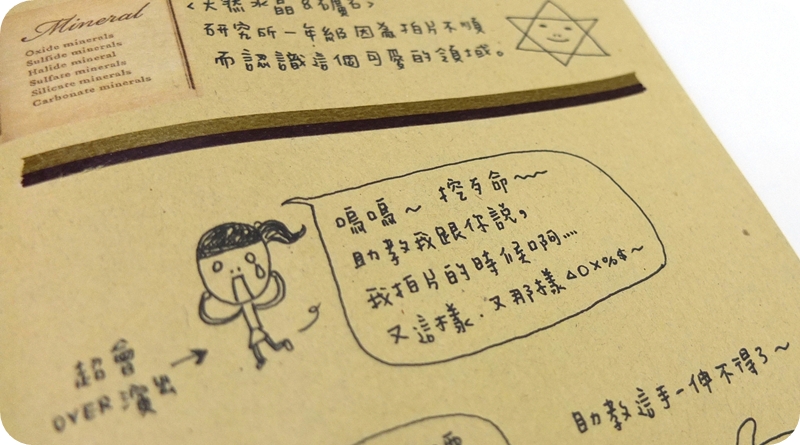 Mineral
Oxide minerals
Sulfide minerals
Halide mineral
Sulfate minerals
Silicate minerals
Carbonate minerals
<天然水晶&礦石>
研究所一年級因為拍片不順
而認識這個可愛的領域。
嗚嗚~ 挖歹命~~
助教我跟你說,
我拍片的時候啊....
又這樣.又那樣△O×%$~
超會
OVER演出
助教這手一伸不得了~